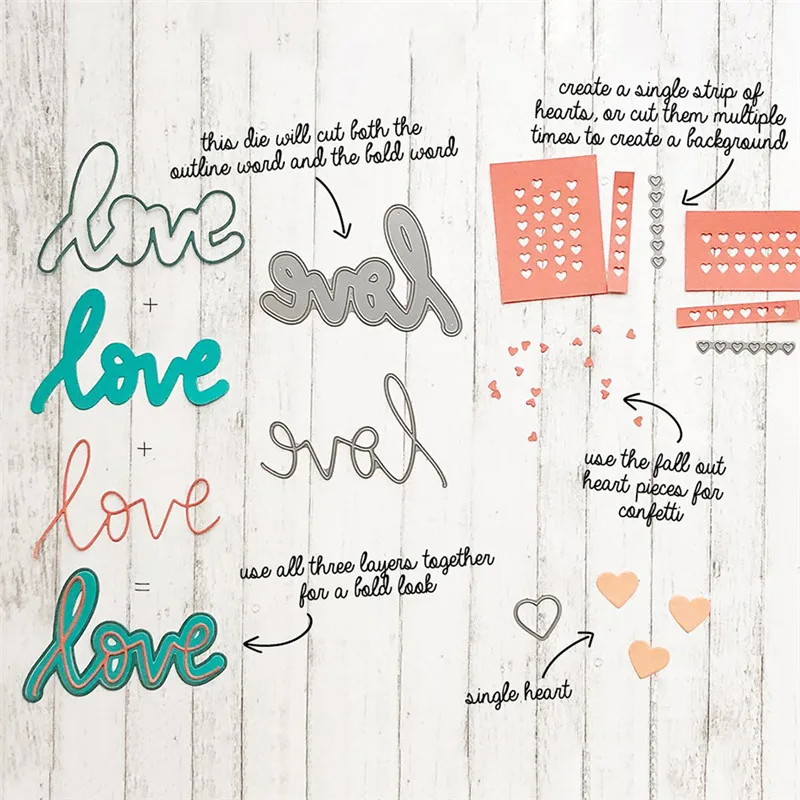 this die will cut both the
outline word and the bold word
create a single strip of
hearts, or cut them multiple
times to create a background
love
+
love
+
love
=
love
love
love
use the fall out
heart pieces for
confetti
use all three layers together
for a bold look
single heart